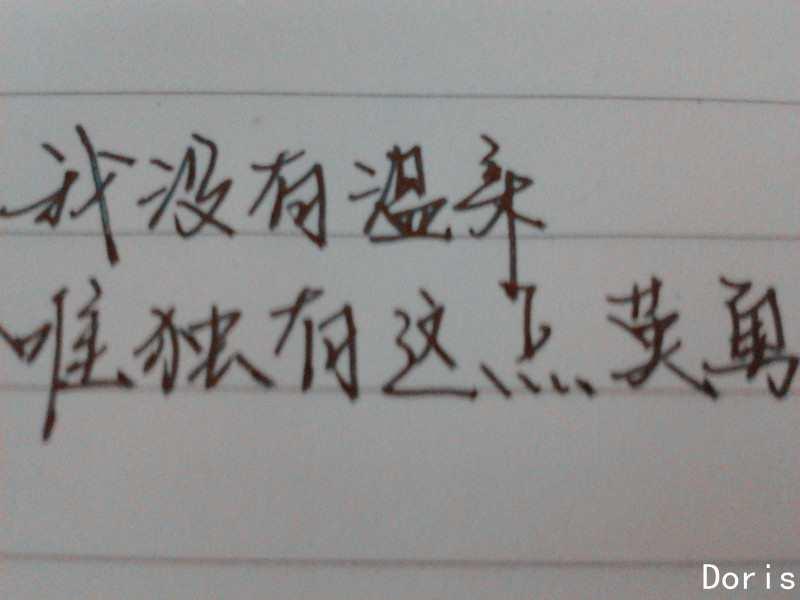 我没有温柔
唯独有这点英勇
Doris